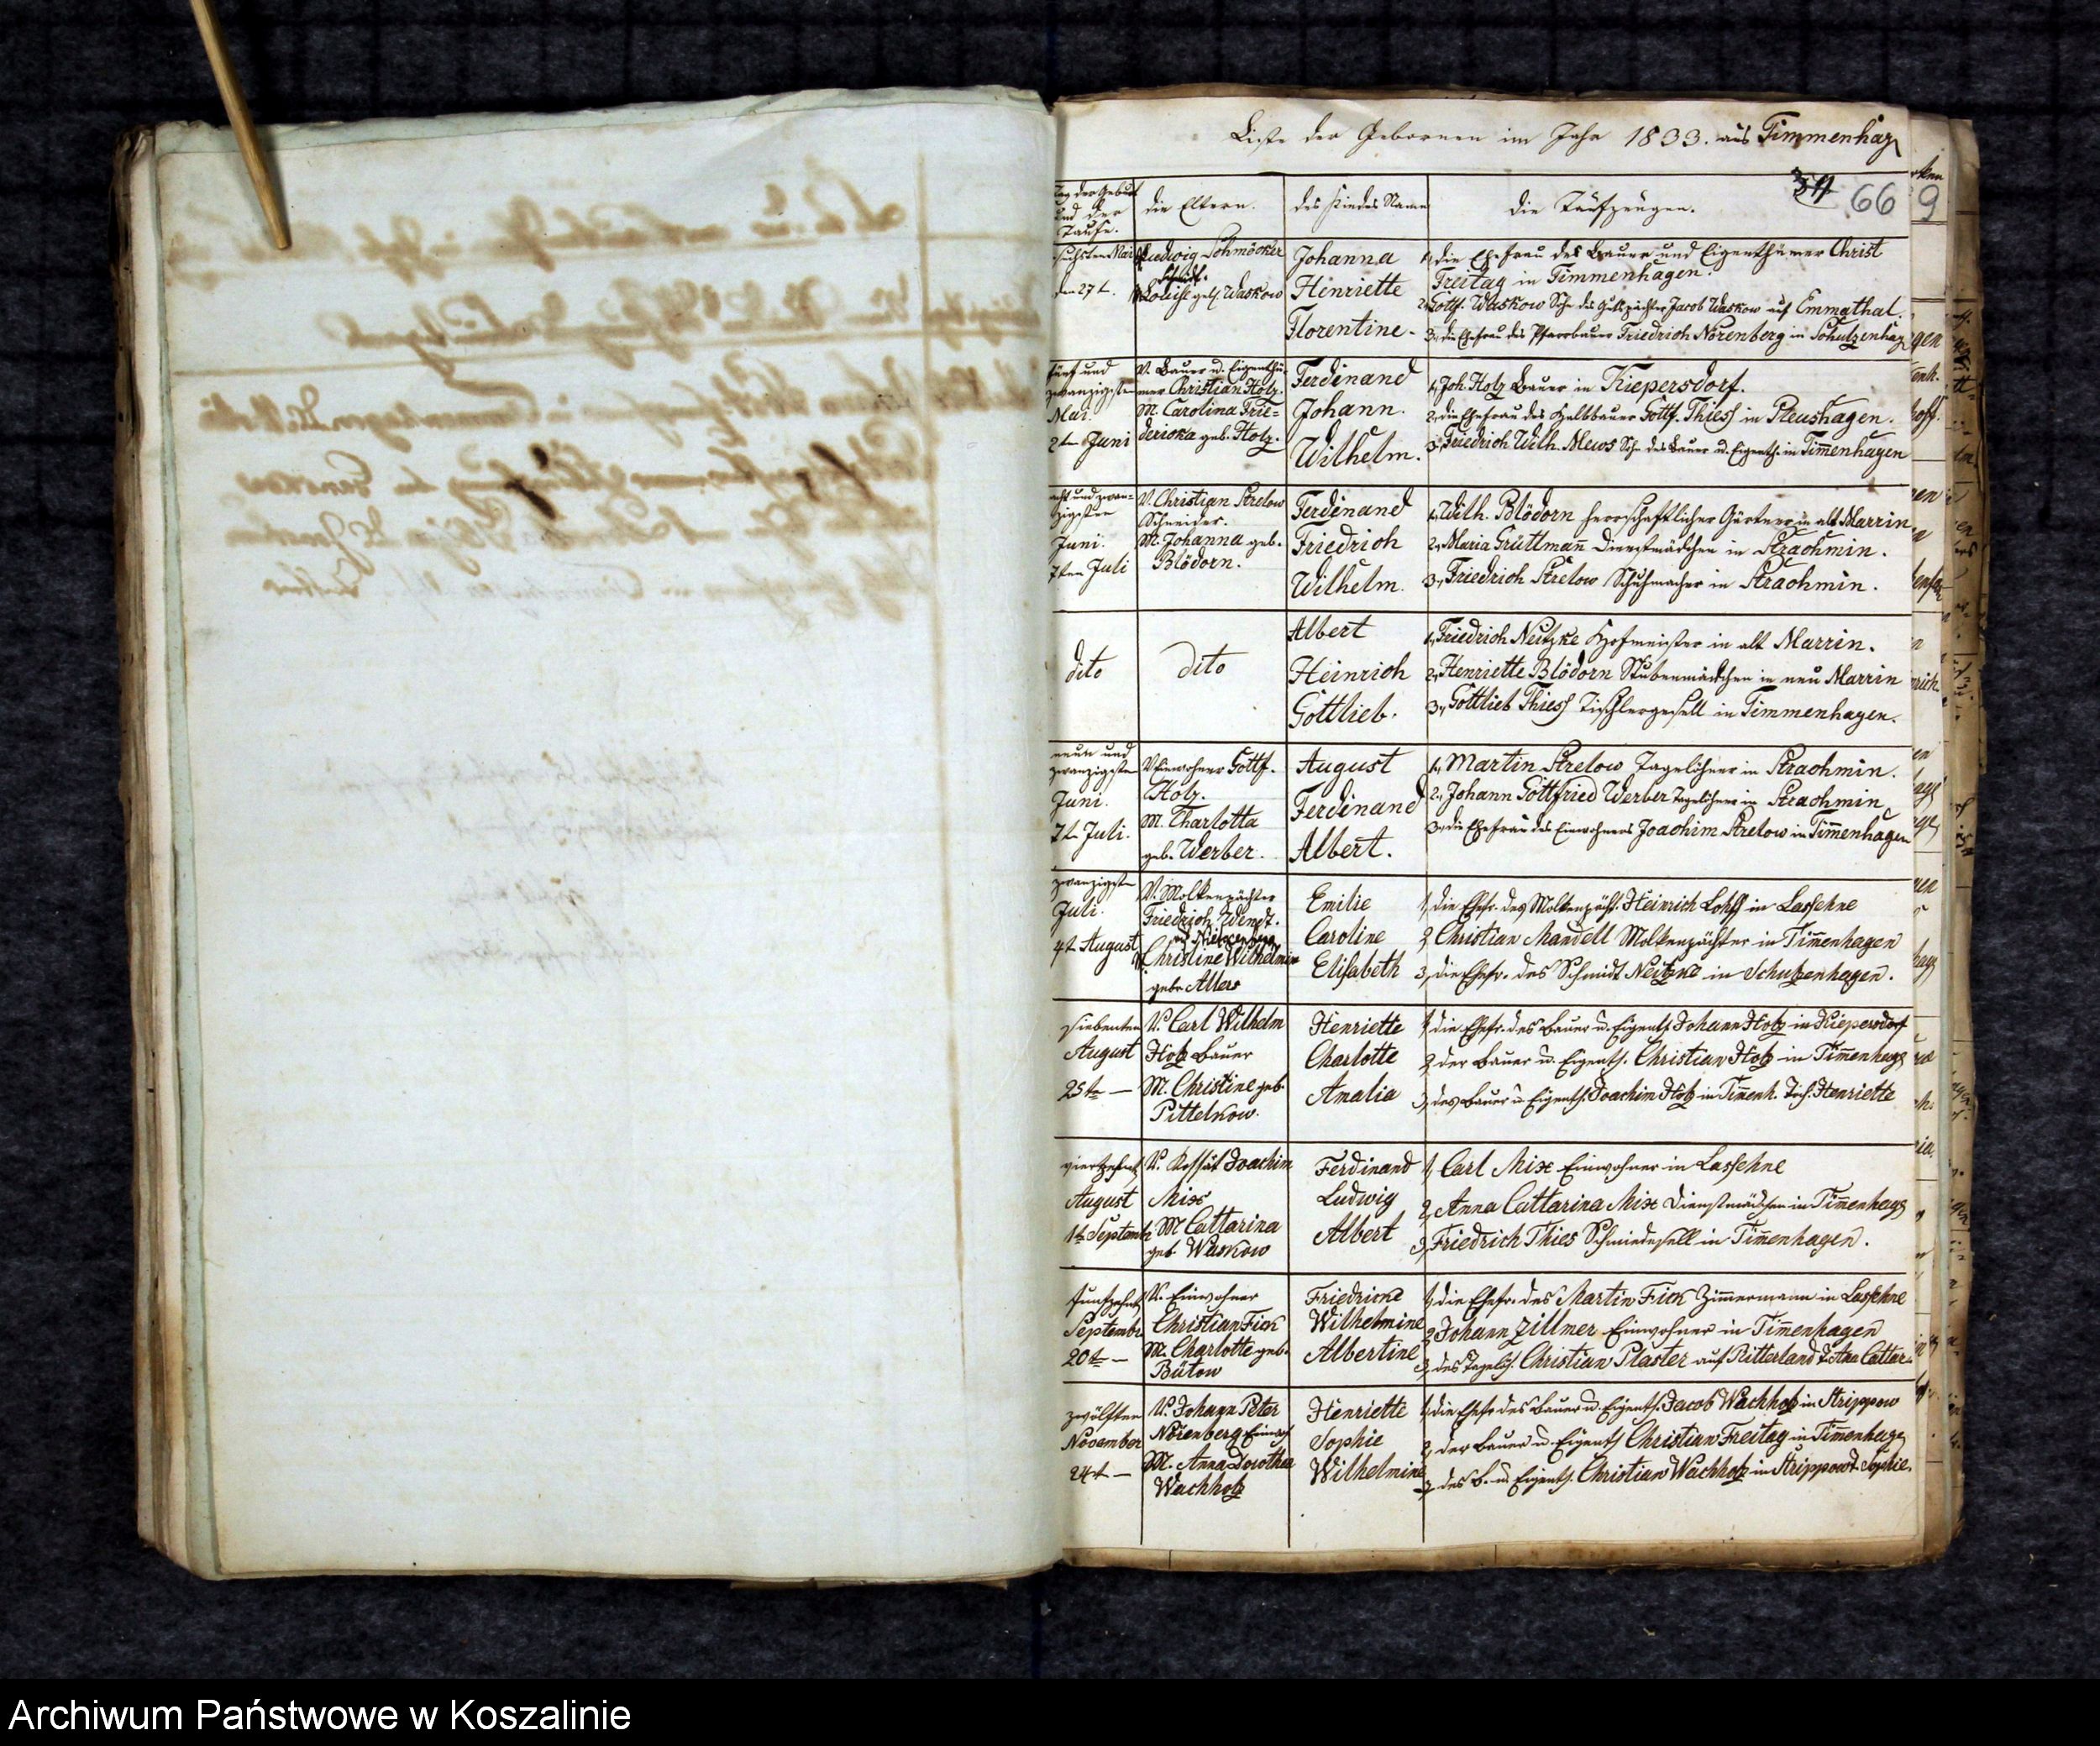 Liste der Gebornen im Jahr 1833. aus Timmenhag
Tag der Geburt und der Taufe.
die Eltern.
des Kindes Name
die Taufzeugen.
66
9
sechsten Mai
den 27t.
Ludwig Schmöcker
Schmidt.
Louise geb. Waskow
Johanna
Henriette
Florentine.
1, die Ehefrau des Bauer und Eigenthümer Christ
Freitag in Timmenhagen.
2, Gottf. Waskow Sohn des Gutspächter Jacob Waskow auf Emmathal.
3, die Ehefrau des Pfarrbauer Friedrich Nörenberg in Schulzenhag
fünf und
zwanzigsten
Mai.
2te Juni
V. Bauer u. Eigenthü-
mer Christian Holz.
M. Carolina Frie-
dericka geb. Holz.
Ferdinand
Johann.
Wilhelm.
1, Joh. Holz Bauer in Kiepersdorf.
2, die Ehefrau des Halbbauer Gottf. Thiess in Pleushagen.
3, Friedrich Wilh. Mews Sohn des Bauer u. Eigenth. in Timmenhagen
acht und zwan-
zigsten
Juni.
7ten Juli
V. Christian Strelow
Schneider.
M. Johanna geb.
Blödorn.
Ferdinand
Friedrich
Wilhelm.
1, Wilh. Blödorn herrschaftlicher Gärtner in alt Marrin
2, Maria Grüttmann Dienstmädchen in Strachmin.
3, Friedrich Strelow Schuhmacher in Strachmin.
dito
dito
Albert
Heinrich
Gottlieb.
1, Friedrich Neitzke Hofmeister in alt Marrin.
2, Henriette Blödorn Stubenmädchen in neu Marrin
3, Gottlieb Thiess Tischlergesell in Timmenhagen.
neun und
zwanzigsten
Juni.
7te Juli.
V. Einwohner Gottf.
Holz.
M. Charlotta
geb. Werber.
August
Ferdinand
Albert.
1, Martin Strelow Tagelöhner in Strachmin.
2, Johann Gottfried Werber Tagelöhner in Strachmin
3, die Ehefrau des Einwohners Joachim Strelow in Timmenhagen
zwanzigsten
Juli.
4t August
V. Molkenpächter
Friedrich Wendt.
Christine Wilhelmine
geb. Allers
Emilie
Caroline
Elisabeth
1, die Ehefr. des Molkenpächt. Heinrich Lohff in Lassehne
2, Christian Mandell Molkenpächter in Timmenhagen
3, die Ehefr. des Schmidt Neitzke in Schulzenhagen.
siebenten
August
25te —
V. Carl Wilhelm
Holz Bauer
M. Christine geb.
Pittelkow.
Henriette
Charlotte
Amalia
1, die Ehefr. des Bauer u. Eigenth. Johann Holz in Kiepersdorf
2, der Bauer u. Eigenth. Christian Holz in Timmenhag
3, des Bauer u Eigenth. Joachim Holz in Timmenh. Toch. Henriette
vierzehnt
August
1te September
V. Kossät Joachim
Mix
M Cattarina
geb. Waskow
Ferdinand
Ludwig
Albert
1, Carl Mix Einwohner in Lassehne
2, Anna Cattarina Mix Dienstmädchen in Timmenhag
3, Friedrich Thies Schmiedesell in Timmenhagen.
funfzehnt
Septembr
20te —
V. Einwohner
Christian Fick
M. Charlotte geb.
Bütow
Friedricke
Wilhelmine
Albertine
1, die Ehefr. des Martin Fick Zimmermann in Lassehne
2, Johann Zillmer Einwohner in Timmenhagen
3, des Tagelöh. Christian Plaster auf Ritterland T. Ana Cattar.
zwölften
November
24t —
V. Johann Peter
Nörenberg Einwoh
M. Anna Dorothea
Wachholz
Henriette
Sophie
Wilhelmine
1, die Ehefr des Bauer u. Eigenth. Jacob Wachholz in Strippow
2, der Bauer u Eigenth Christian Freitag in Timmenhage
3, des B. u. Eigenth. Christian Wachholz in Strippow T. Sophie.
Archiwum Państwowe w Koszalinie